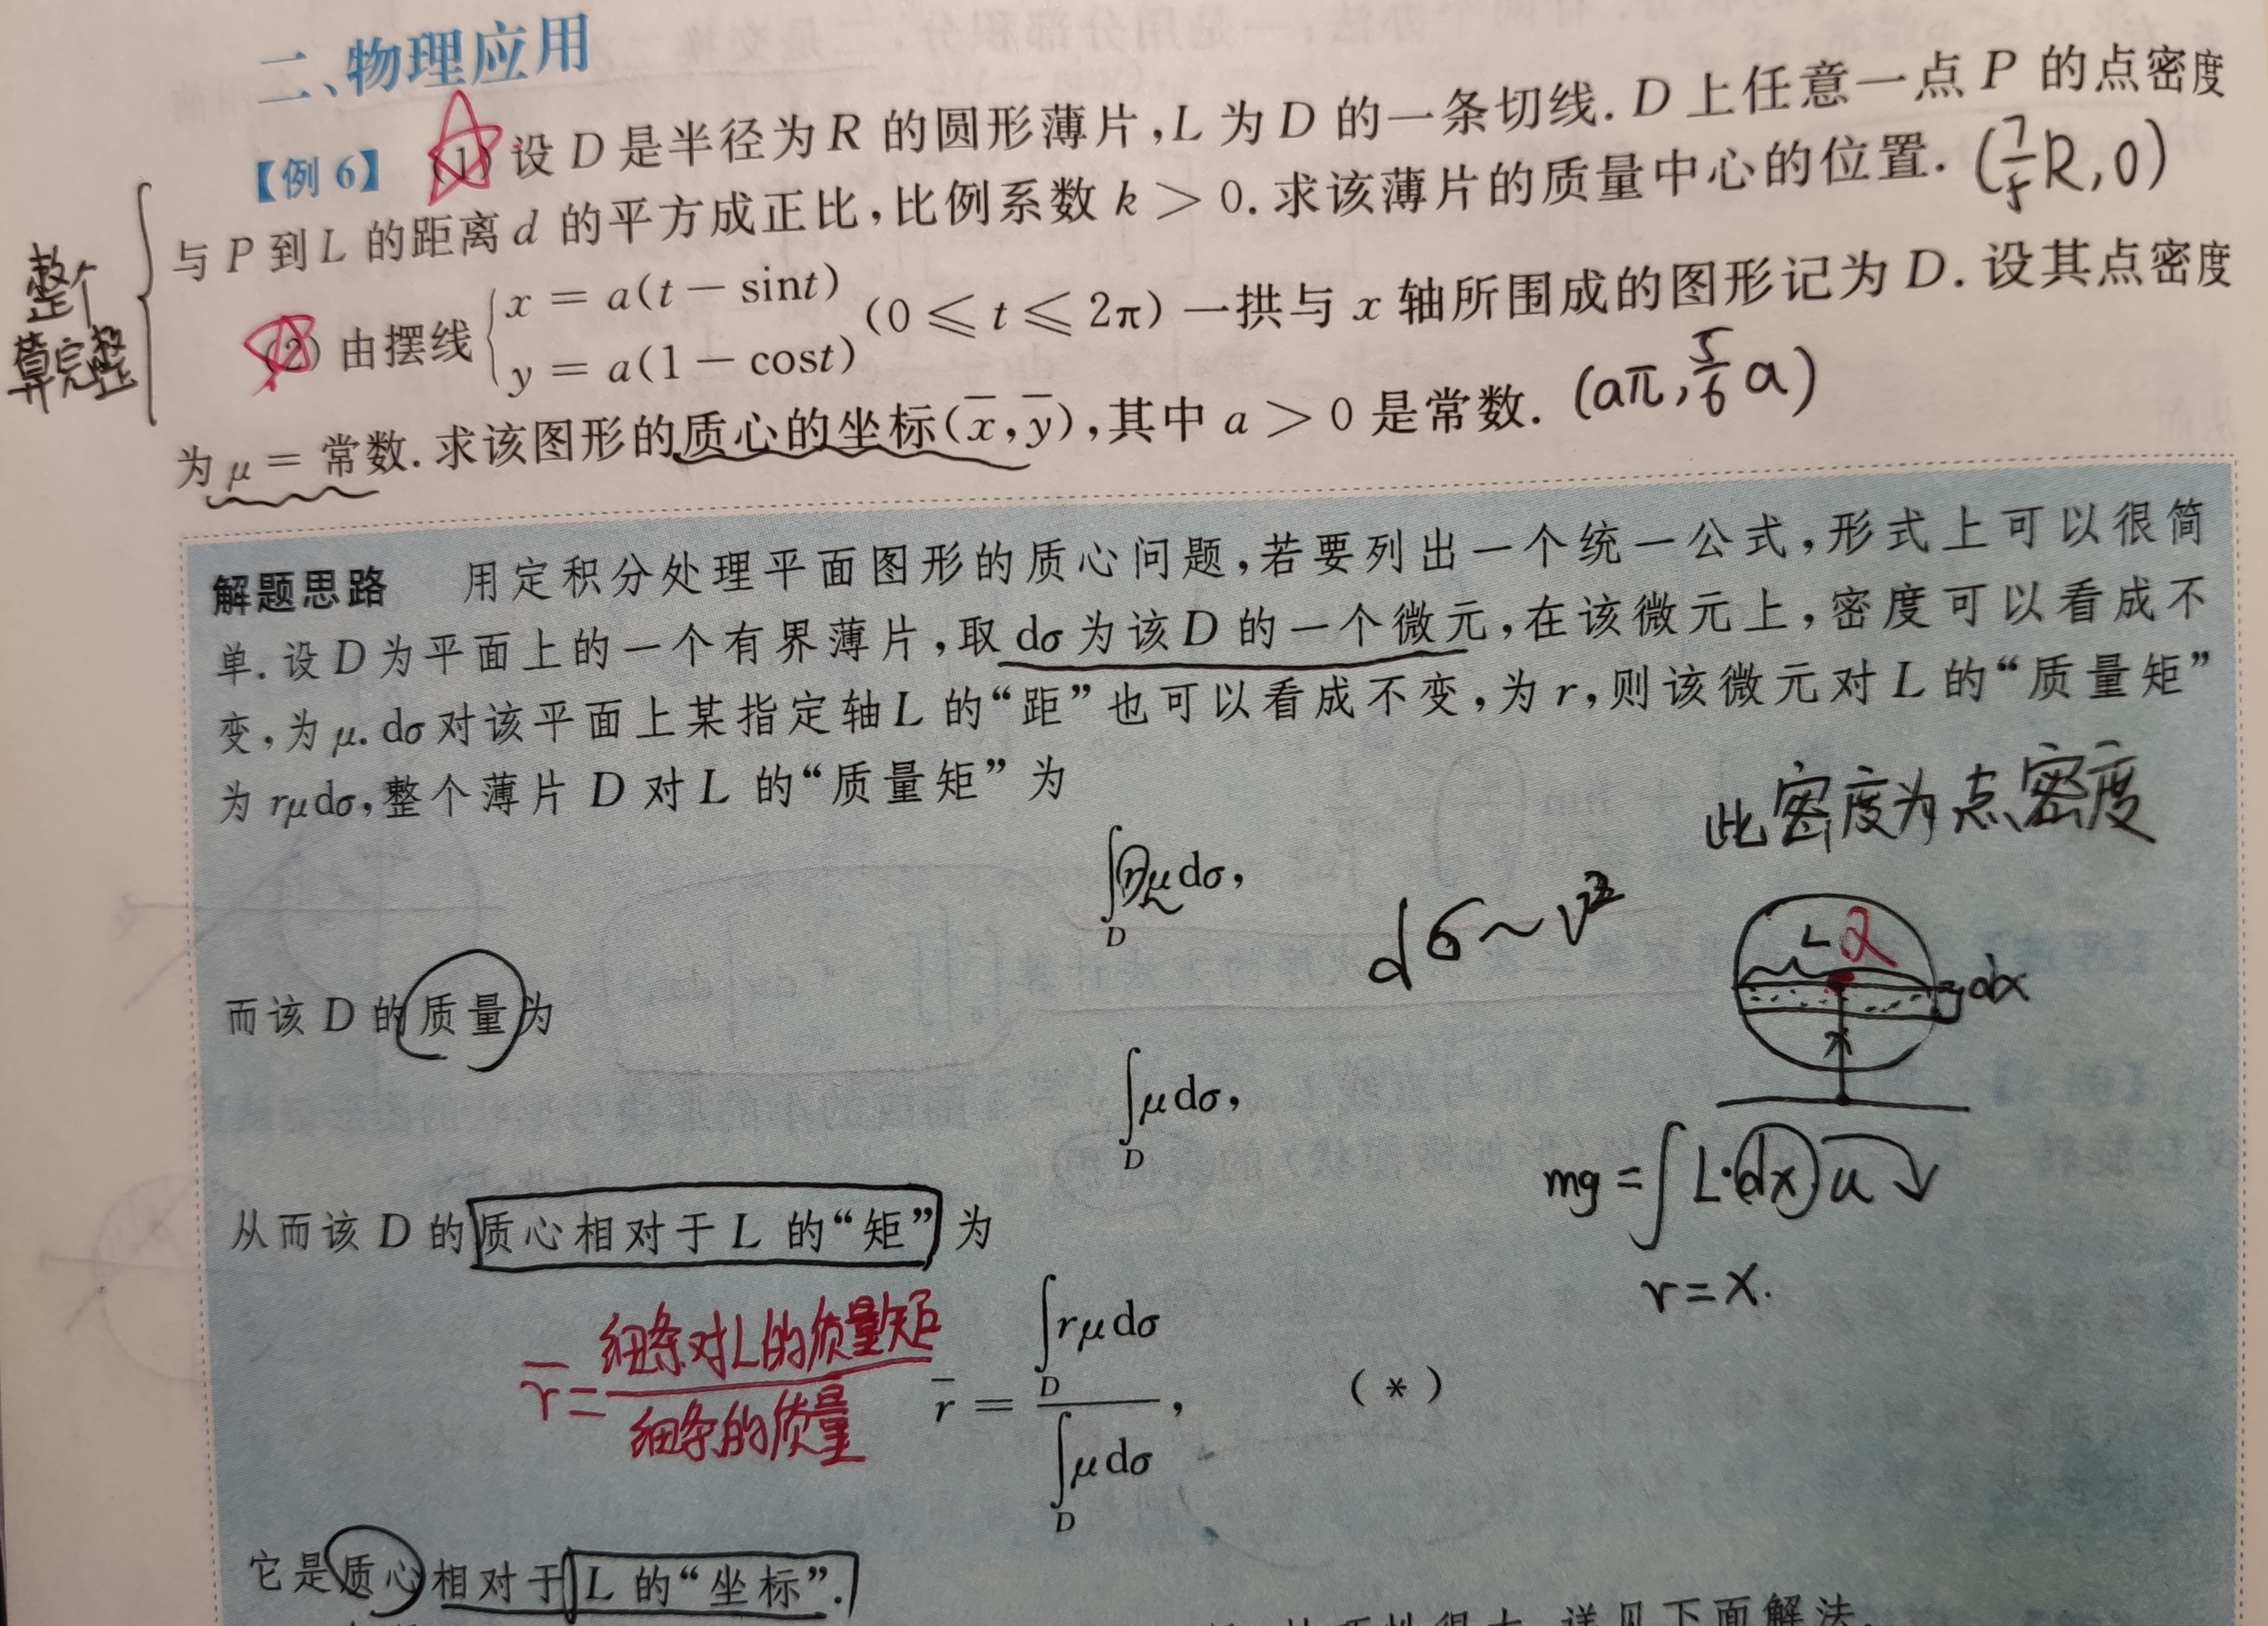 二、物理应用
【例6】 (1) 设 D 是半径为 R 的圆形薄片,L 为 D 的一条切线. D 上任意一点 P 的点密度
与 P 到 L 的距离 d 的平方成正比,比例系数 k > 0. 求该薄片的质量中心的位置. (7/5 R, 0)
整个
算完整
(2) 由摆线 { x = a(t − sint) y = a(1 − cost) (0 ⩽ t ⩽ 2π) 一拱与 x 轴所围成的图形记为 D. 设其点密度
为 μ = 常数. 求该图形的质心的坐标(x̄, ȳ),其中 a > 0 是常数. (aπ, 5/6 a)
解题思路 用定积分处理平面图形的质心问题,若要列出一个统一公式,形式上可以很简
单. 设 D 为平面上的一个有界薄片,取 dσ 为该 D 的一个微元,在该微元上,密度可以看成不
变,为 μ. dσ 对该平面上某指定轴 L 的“距”也可以看成不变,为 r,则该微元对 L 的“质量矩”
为 rμdσ,整个薄片 D 对 L 的“质量矩”为
此密度为点密度
∫_D rμdσ,
dσ~
L
dx
而该 D 的质量为
∫_D μdσ,
mg = ∫L·dx u
r = x.
从而该 D 的质心相对于 L 的“矩”为
r̄ = 细条对L的质量矩 / 细条的质量
r̄ = ∫_D rμdσ / ∫_D μdσ, (*)
它是质心相对于 L 的“坐标”.
详见下面解法.